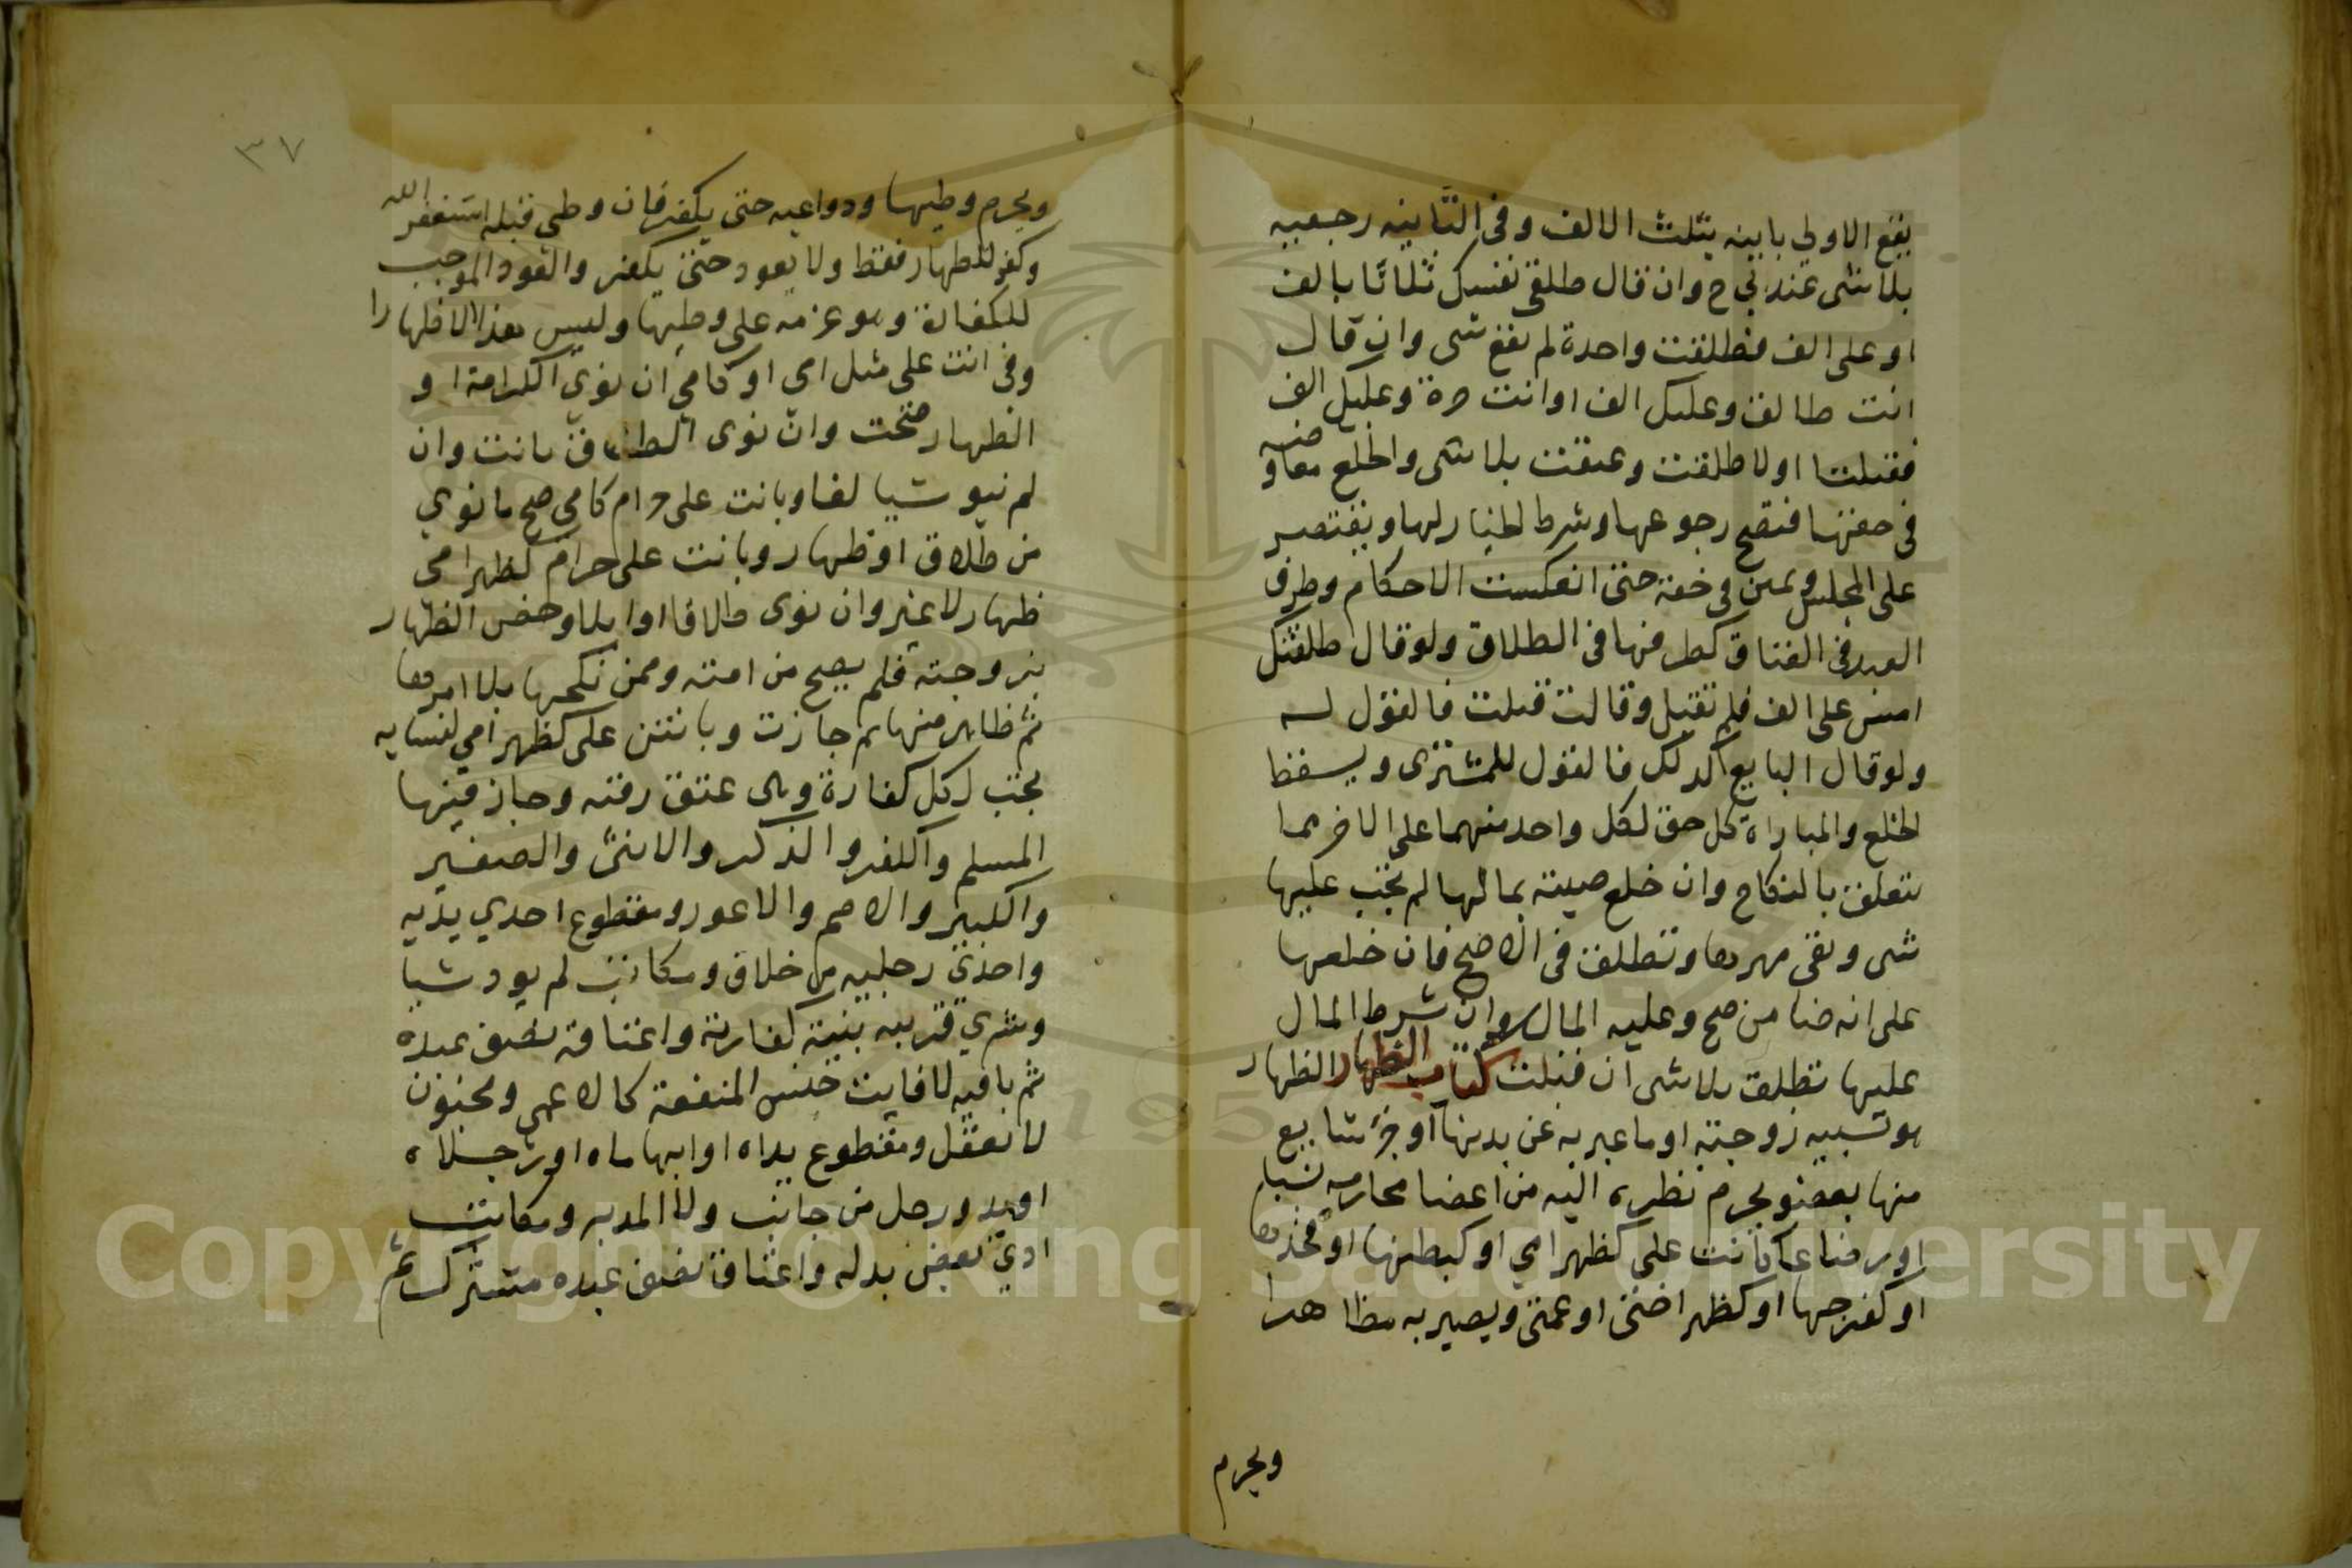 يقع الاولي باينه بثلث الالف وفي الثانيه رجعيه
بلا شى عند بي ح وان قال طلقى نفسك ثلاثا بالف
او على الف فطلقت واحدة لم يقع شى وان قال
انت طالق وعليك الف او انت حرة وعليك الف
فقبلتا اولا طلقت وعتقت بلا شى والخلع معاوضه
في حقها فتصح رجوعها وشرط الخيار لها ويقتصر
على المجلس ويمين في حقه حتى انعكست الاحكام وطرف
العبد في العتاق كطرفها في الطلاق ولو قال طلقتك
امس على الف فلم تقبل وقالت قبلت فالقول له
ولو قال البايع كذلك فالقول للمشترى ويسقط
الخلع والمباراة كل حق لكل واحد منهما على الاخر مما
يتعلق بالنكاح وان خلع صبيته بمالها لم يجب عليها
شى وبقى مهرها وتطلق في الاصح فان خلعها
على انه ضامن صح وعليه المال وان شرط المال
عليها تطلق بلا شى ان قبلت كتاب الظهار الظهار
هو تشبيه زوجته او ما عبر به عن بدنها او جزء شايع
منها بعضو يحرم نظره اليه من اعضا محارمه نسبا
او رضاعا كانت على كظهر امي او كبطنها او فخذها
او كفرجها او كظهر اختى او عمتى ويصير به مظاهرا
ويحرم
٣٧
ويحرم وطيها ودواعيه حتى يكفر فان وطى قبله استغفر الله
وكفر للظهار فقط ولا يعود حتى يكفر والعود الموجب
للكفارة وهو عزمه على وطيها وليس هذا الا ظهارا
وفي انت على مثل امى او كامي ان نوي الكرامة او
الظهار صحت وان نوى الطلاق بانت وان
لم ينو شيا لغا وبانت على حرام كامي صح ما نوي
من طلاق او ظهار وبانت على حرام كظهر امى
ظهار لا غير وان نوى طلاقا او ايلا وخص الظهار
بزوجته فلم يصح من امته وممن نكحها بلا امرها
ثم ظاهر منها ثم جازت وبانتن على كظهر امي لنسايه
يجب لكل كفارة وهى عتق رقبه وجاز فيها
المسلم والكافر والذكر والانثى والصغير
والكبير والاصم والاعور ومقطوع احدي يديه
واحدى رجليه من خلاف ومكاتب لم يود شيا
وشري قريبه بنية كفارته واعتاقه نصف عبده
ثم باقيه لا فايت جنس المنفعة كالاعمى ومجنون
لا يعقل ومقطوع يداه او ابهاماه او رجلاه
او يد ورجل من جانب ولا المدبر ومكاتب
ادي بعض بدله واعتاق نصف عبده مشترك ثم
Copyright © King Saud University
1957